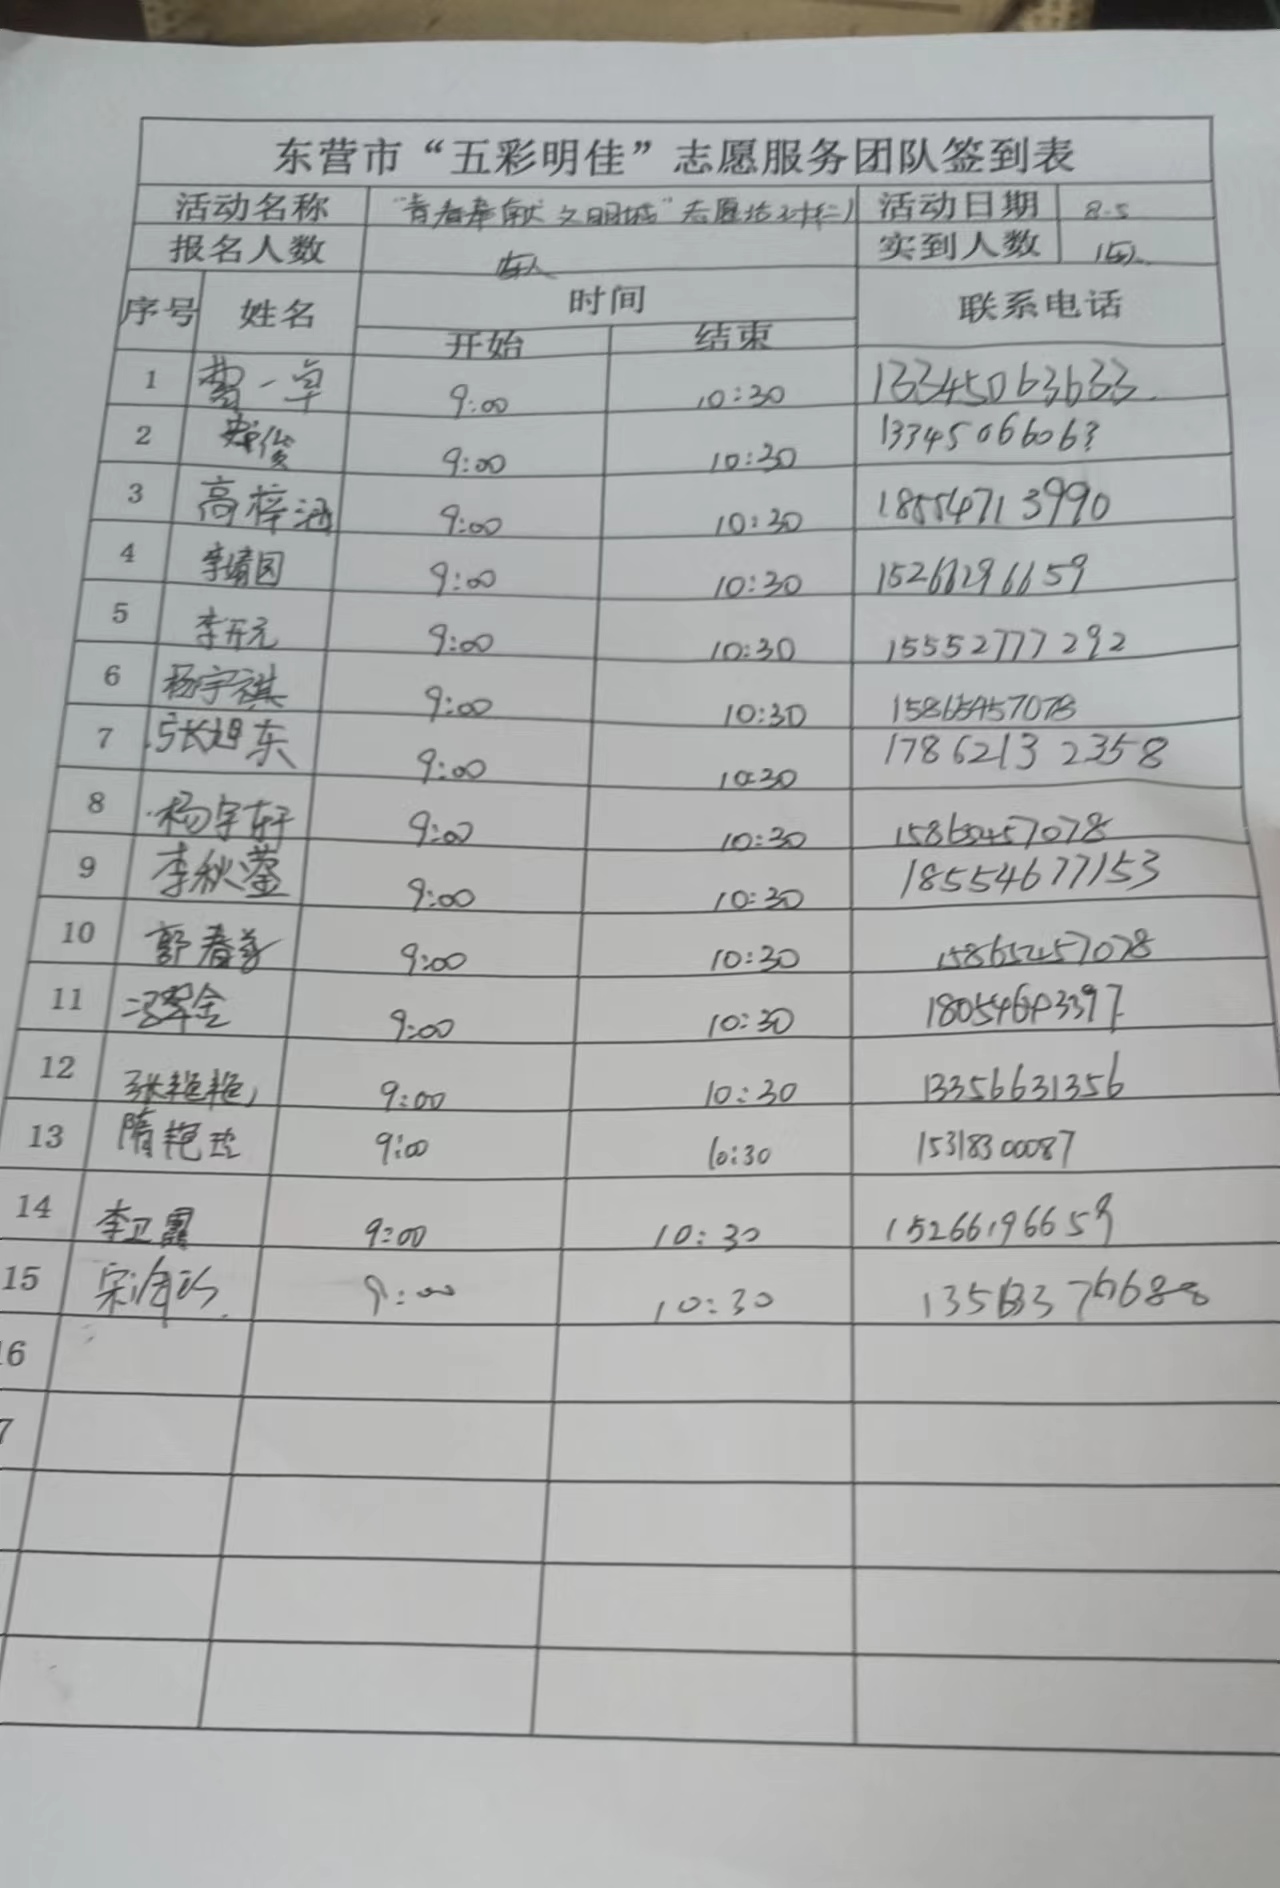 东营市“五彩明佳”志愿服务团队签到表
活动名称 "青春奉献 文明城"志愿 活动日期 8.5
报名人数 实到人数 15人
序号 姓名 时间 联系电话
开始 结束
1 曹一卓 9:00 10:30 13345063633
2 9:00 10:30 13345066063
3 高梓涵 9:00 10:30 18554713990
4 李靖图 9:00 10:30 15266196659
5 李开元 9:00 10:30 15552777292
6 杨宇祺 9:00 10:30 15865457078
7 张旭东 9:00 10:30 17862132358
8 杨宇轩 9:00 10:30 15865457078
9 李秋滢 9:00 10:30 18554677153
10 郭春 9:00 10:30 15865457078
11 9:00 10:30
12 张艳艳 9:00 10:30 13356631356
13 隋艳 9:00 10:30 15318300087
14 李卫霞 9:00 10:30 15266196659
15 宋 9:00 10:30
16
7